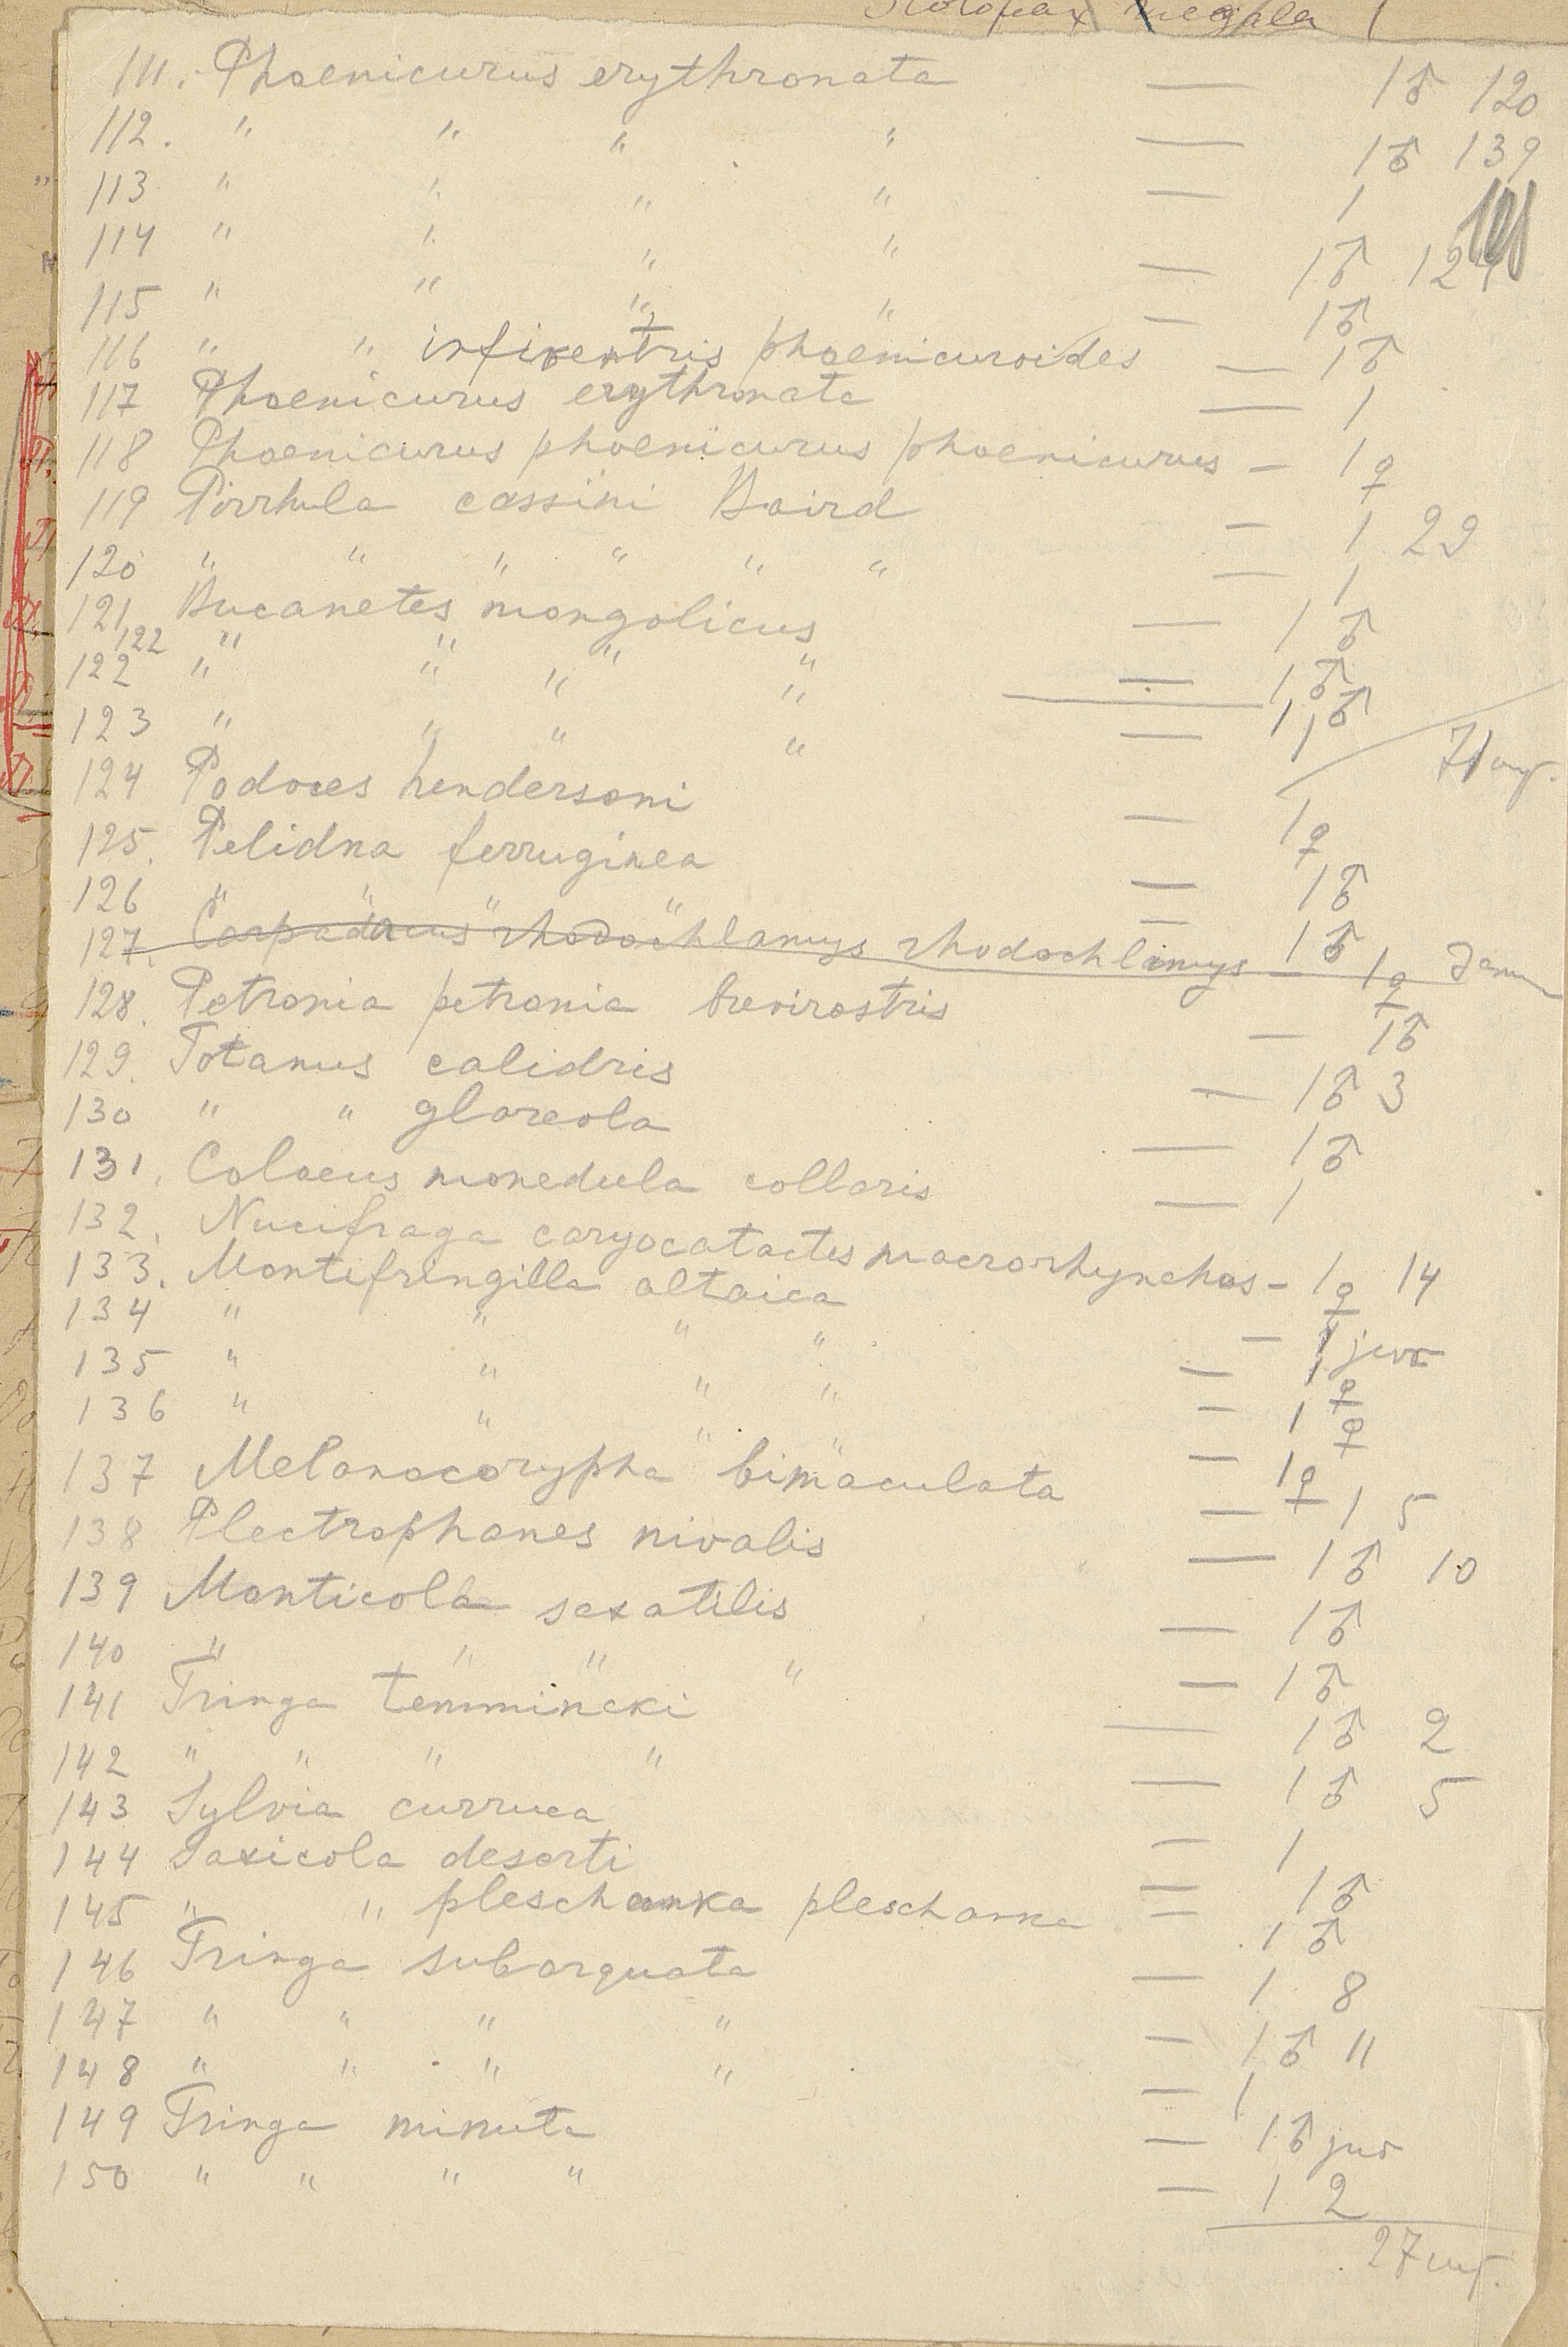 Scolopax megala 1
111. Phoenicurus erythronata — 1♂ 120
112. " " " " — 1♂ 139
113 " " " " — 1
114 " " " " — 1♂ 124
115 " " " " — 1♂
116 " " rufiventris phoenicuroides — 1♂
117 Phoenicurus erythronata — 1
118 Phoenicurus phoenicurus phoenicurus — 1♀
119 Pirrhula cassini Baird — 1 29
120 " " " " " " — 1
121 Bucanetes mongolicus — 1♂
122 " " " " — 1♂
122 " " " " — 1♂
123 " " " " — 1
71
124 Podoces hendersoni — 1♀
125. Pelidna ferruginea — 1♂
126 " " " " — 1♂
127. Carpadacus rhodochlamys rhodochlamys — 1♀
128. Petronia petronia brevirostris — 1♂
129. Totanus calidris — 1♂ 3
130 " " glareola — 1♂
131. Colaeus monedula collaris — 1
132. Nucifraga caryocatactes macrorhynchos — 1♀ 14
133. Montifringilla altaica — 1 juv
134 " " " " — 1♀
135 " " " " — 1♀
136 " " " " — 1♀
137 Melanocorypha bimaculata — 1 5
138 Plectrophanes nivalis — 1♂ 10
139 Monticola saxatilis — 1♂
140 " " " " — 1♂
141 Tringa temmincki — 1♂ 2
142 " " " " — 1♂ 5
143 Sylvia curruca — 1
144 Saxicola deserti — 1♂
145 " " pleschanka pleschanka — 1♂
146 Tringa subarquata — 1 8
147 " " " " — 1♂ 11
148 " " " " — 1
149 Tringa minuta — 1♂ juv
150 " " " " — 1 2
27